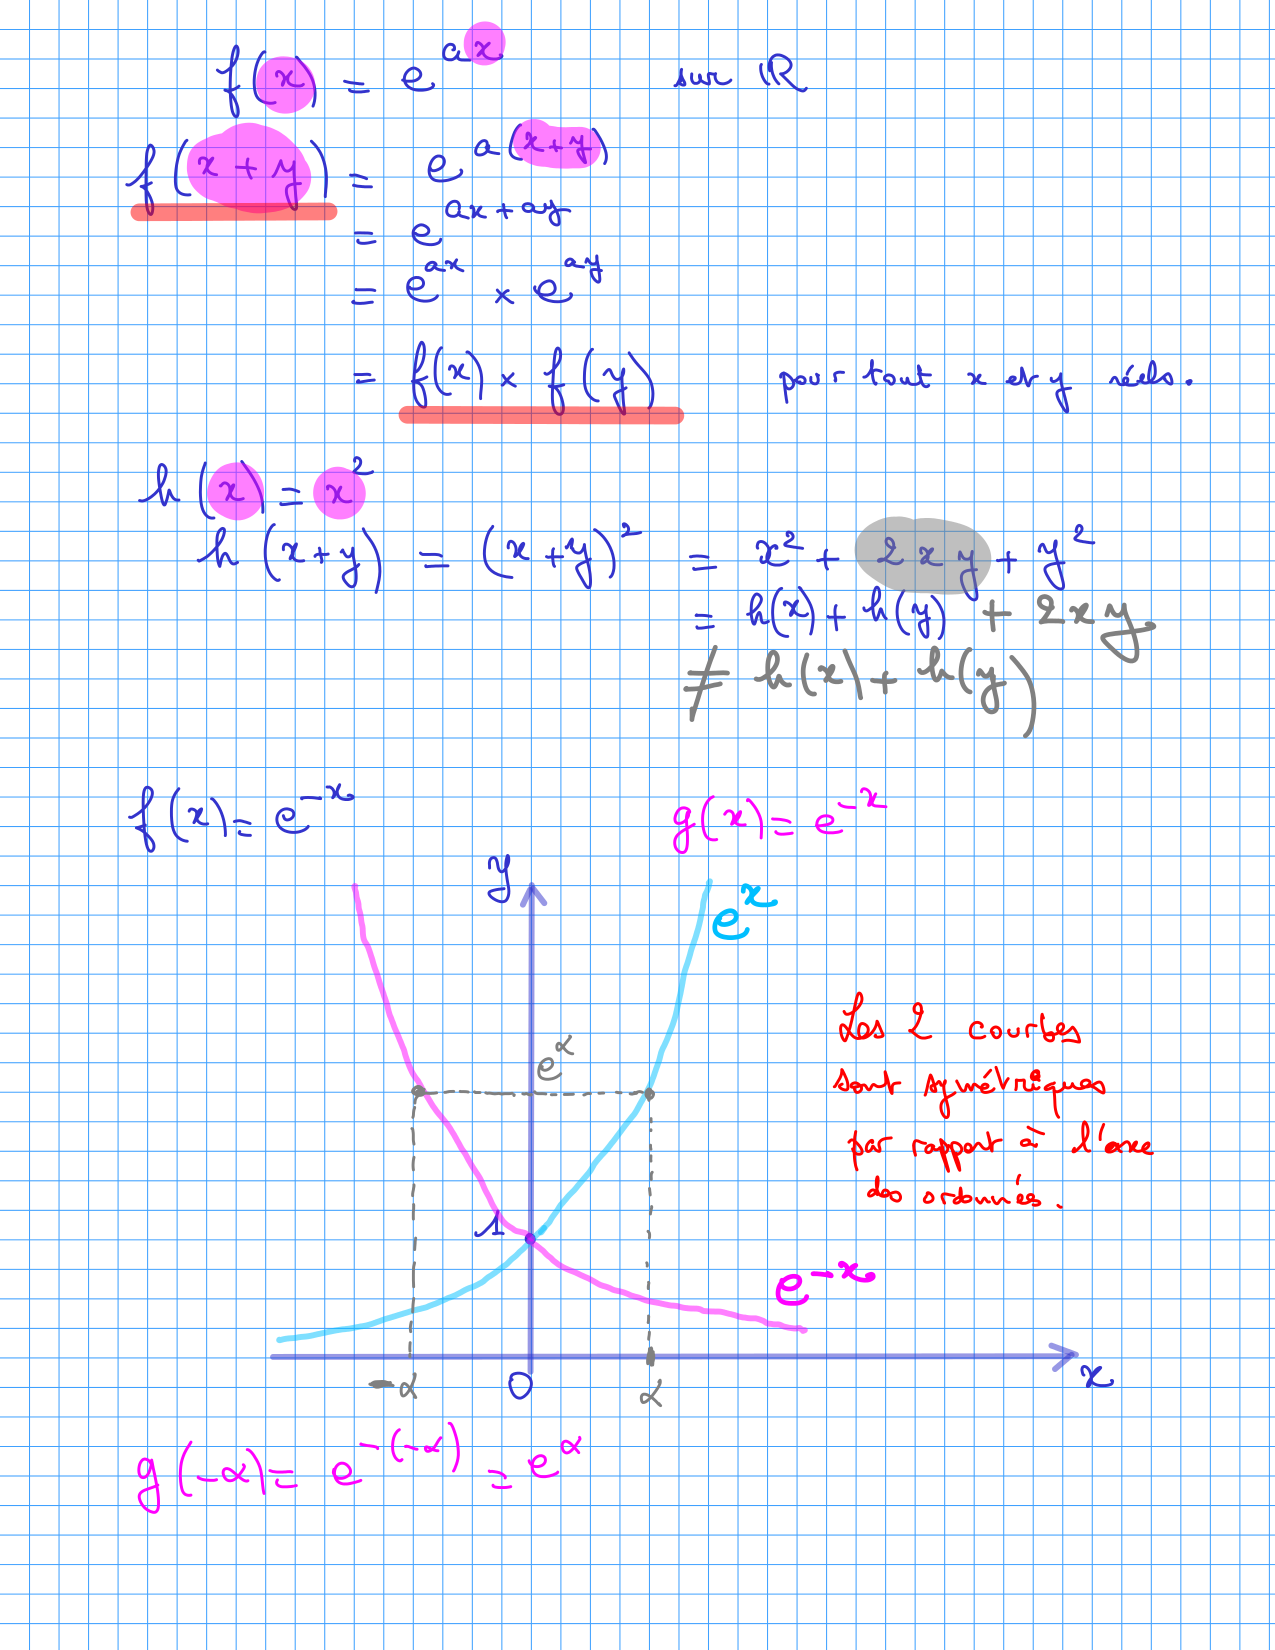 f(x) = e^{ax} sur ℝ
f(x+y) = e^{a(x+y)}
= e^{ax+ay}
= e^{ax} × e^{ay}
= f(x) × f(y) pour tout x et y réels.
h(x) = x²
h(x+y) = (x+y)² = x² + 2xy + y²
= h(x) + h(y) + 2xy
≠ h(x) + h(y)
f(x) = e^{-x} g(x) = e^{-x}
y
e^x
e^α
Les 2 courbes
sont symétriques
par rapport à l'axe
des ordonnées.
1
e^{-x}
-α 0 α x
g(-α) = e^{-(-α)} = e^α